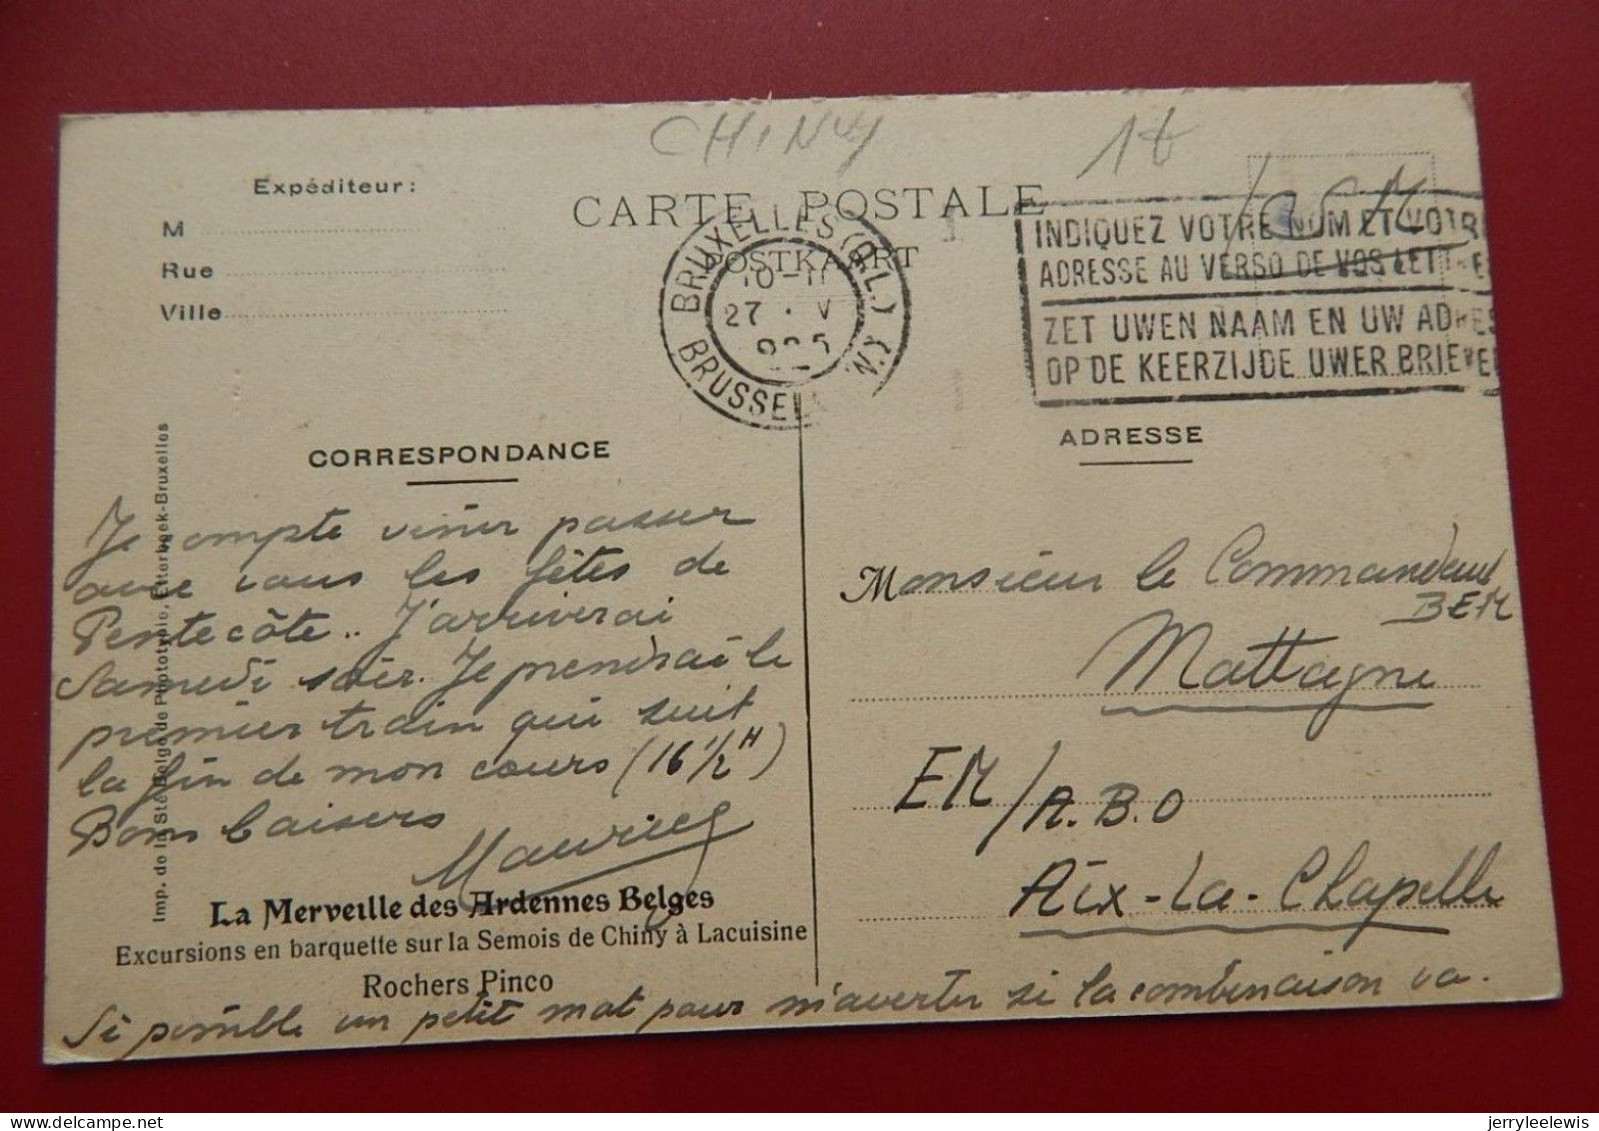 CHINY
Expéditeur :
M
Rue
Ville
CARTE POSTALE
POSTKAART
BRUXELLES (Q.L.)
10-11
27 . V
BRUSSEL
INDIQUEZ VOTRE NOM ET VOTRE
ADRESSE AU VERSO DE VOS LETTRE
ZET UWEN NAAM EN UW ADRES
OP DE KEERZIJDE UWER BRIEVE
Imp. de la Sté Belge de Phototypie, Etterbeek-Bruxelles
CORRESPONDANCE
Je compte venir passer
avec vous les fêtes de
Pentecôte.. J'arriverai
Samedi soir. Je prendrai le
premier train qui suit
la fin de mon cours (16 1/2 H)
Bons baisers
Maurice
La Merveille des Ardennes Belges
Excursions en barquette sur la Semois de Chiny à Lacuisine
Rochers Pinco
Si possible un petit mot pour m'avertir si la combinaison va.
ADRESSE
Monsieur le Commandant
BEM
Mattagne
EM/A.B.O
Aix-La-Chapelle
jerryleelewis